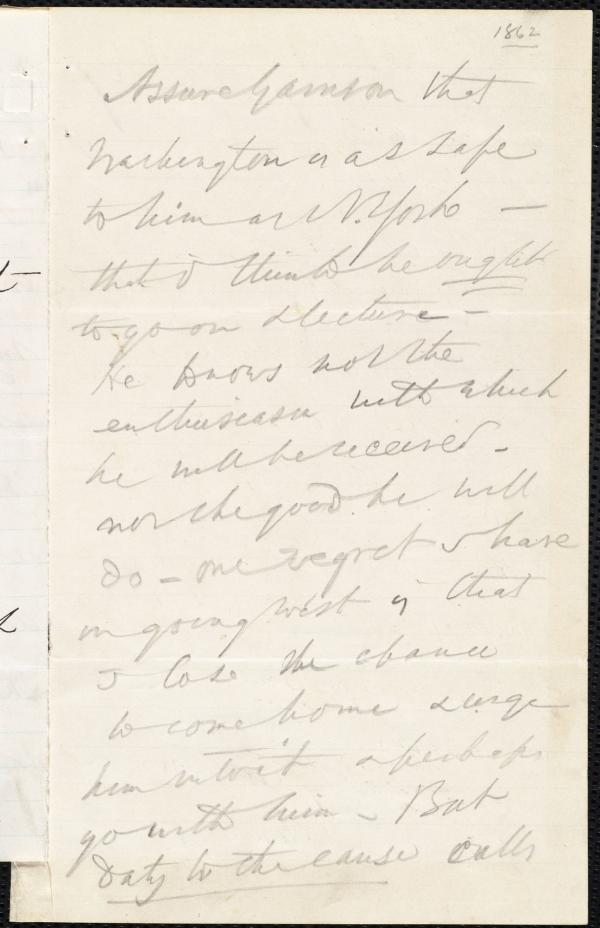 1862
Assure Garrison that
Washington is as safe
to him as N. York —
that I think he ought
to go on & lecture —
He knows not the
enthusiasm with which
he will be received —
nor the good he will
do — one regret I have
in going West is that
I lose the chance
to come home & urge
him into it & perhaps
go with him — But
Duty to the cause calls